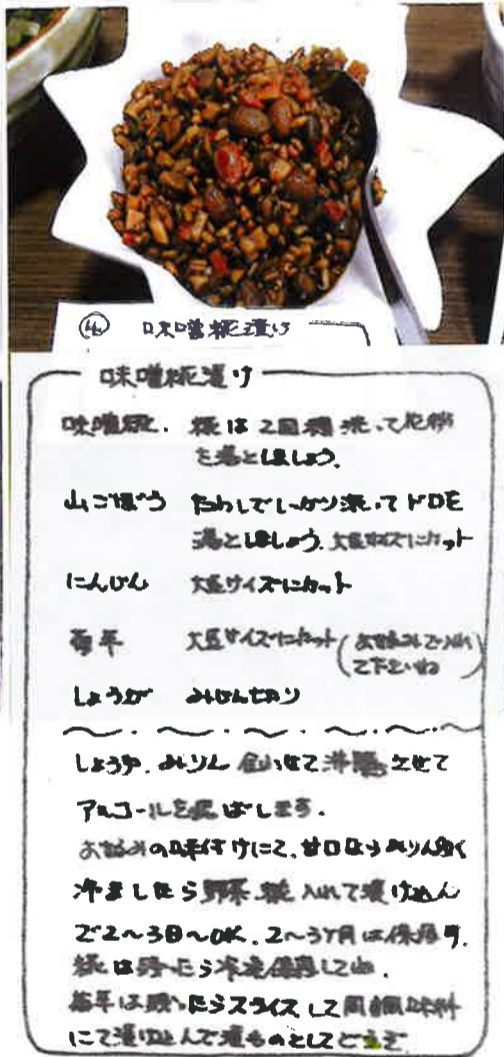 ④ 味噌糀漬け
味噌糀漬け
味噌糀. 糀は2回程洗って花粉
を落としましょう.
山ごぼう たわしでしっかり洗ってドロを
落としましょう. 大豆サイズにカット
にんじん 大豆サイズにカット
大豆サイズにカット (お好みで入れ
て下さいね)
しょうが みじん切り
しょうゆ. みりん 合わせて沸騰させて
アルコールを飛ばします.
お好みの味付けにて、甘口ならみりん多く
冷ましたら野菜.糀 入れて漬け込ん
で2〜3日〜OK. 2〜3ヶ月は保存可.
糀は残ったら冷凍保存してね.
は残ったらスライスして同調味料
にて漬け込んで漬ものとしてどうぞ